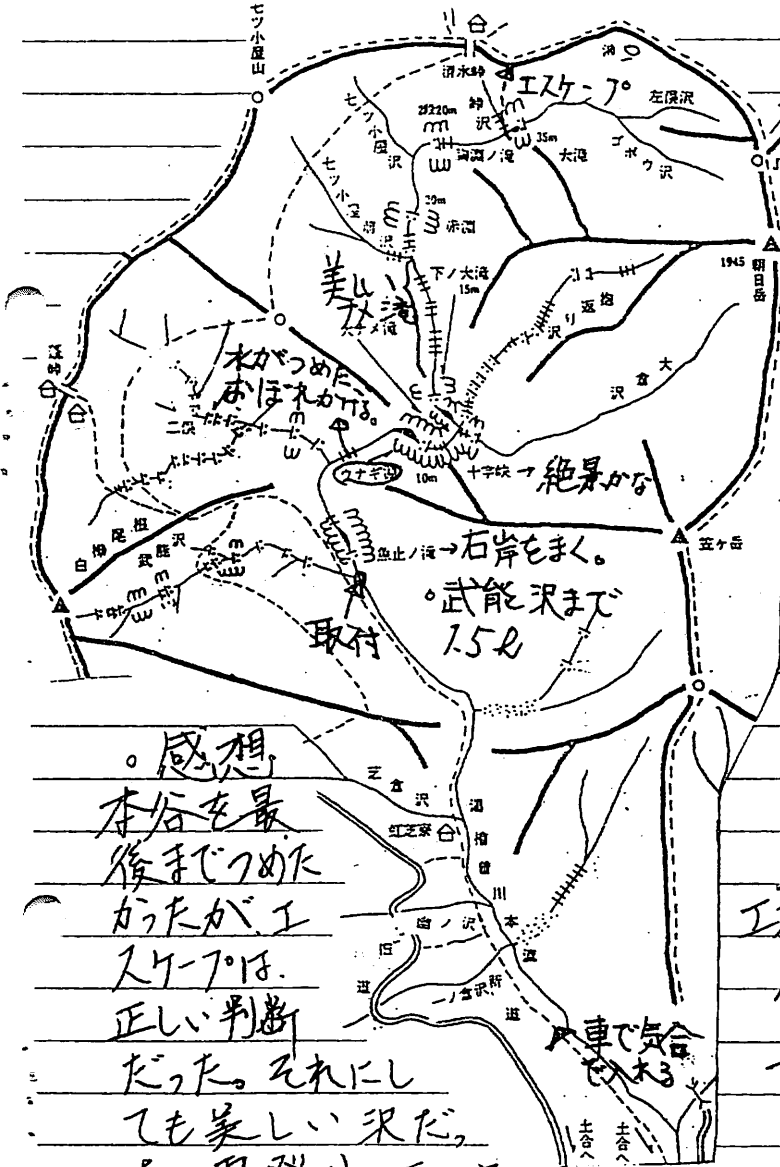 七ツ小屋山
清水峠
エスケープ
峠沢
左俣沢
ゴボウ沢
七ツ小屋沢
35m
大滝
20m
赤淵
七ツ小屋前沢
下ノ大滝
15m
美しい
ナメ滝
1945
朝日岳
抱返り沢
大倉沢
水がつめたい
おぼれかける。
二俣
ウナギ淵
10m
十字峡→絶景かな
笠ヶ岳
白樺尾根
武能沢
魚止ノ滝→右岸をまく。
武能沢まで
1.5h
取付
芝倉沢
虹芝寮
湯檜曽川本流
幽ノ沢
旧道
一ノ倉沢
車で気合
で入れる
土合へ
土合へ
。感想
本谷を最
後までつめた
かったが、エ
スケープは
正しい判断
だった。それにし
ても美しい沢だ。